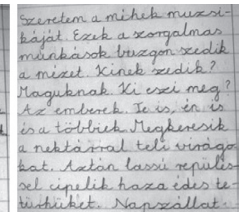 Szeretem a méhek muzsi-
káját. Ezek a szorgalmas
munkások buzgón szedik
a mézet. Kinek szedik?
Maguknak. Ki eszi meg?
Az emberek. Te is, én is
és a többiek. Megkeresik
a nektárral teli virágo-
kat. Aztán lassú repülés-
sel cipelik haza édes te-
rhüket. Napszállat